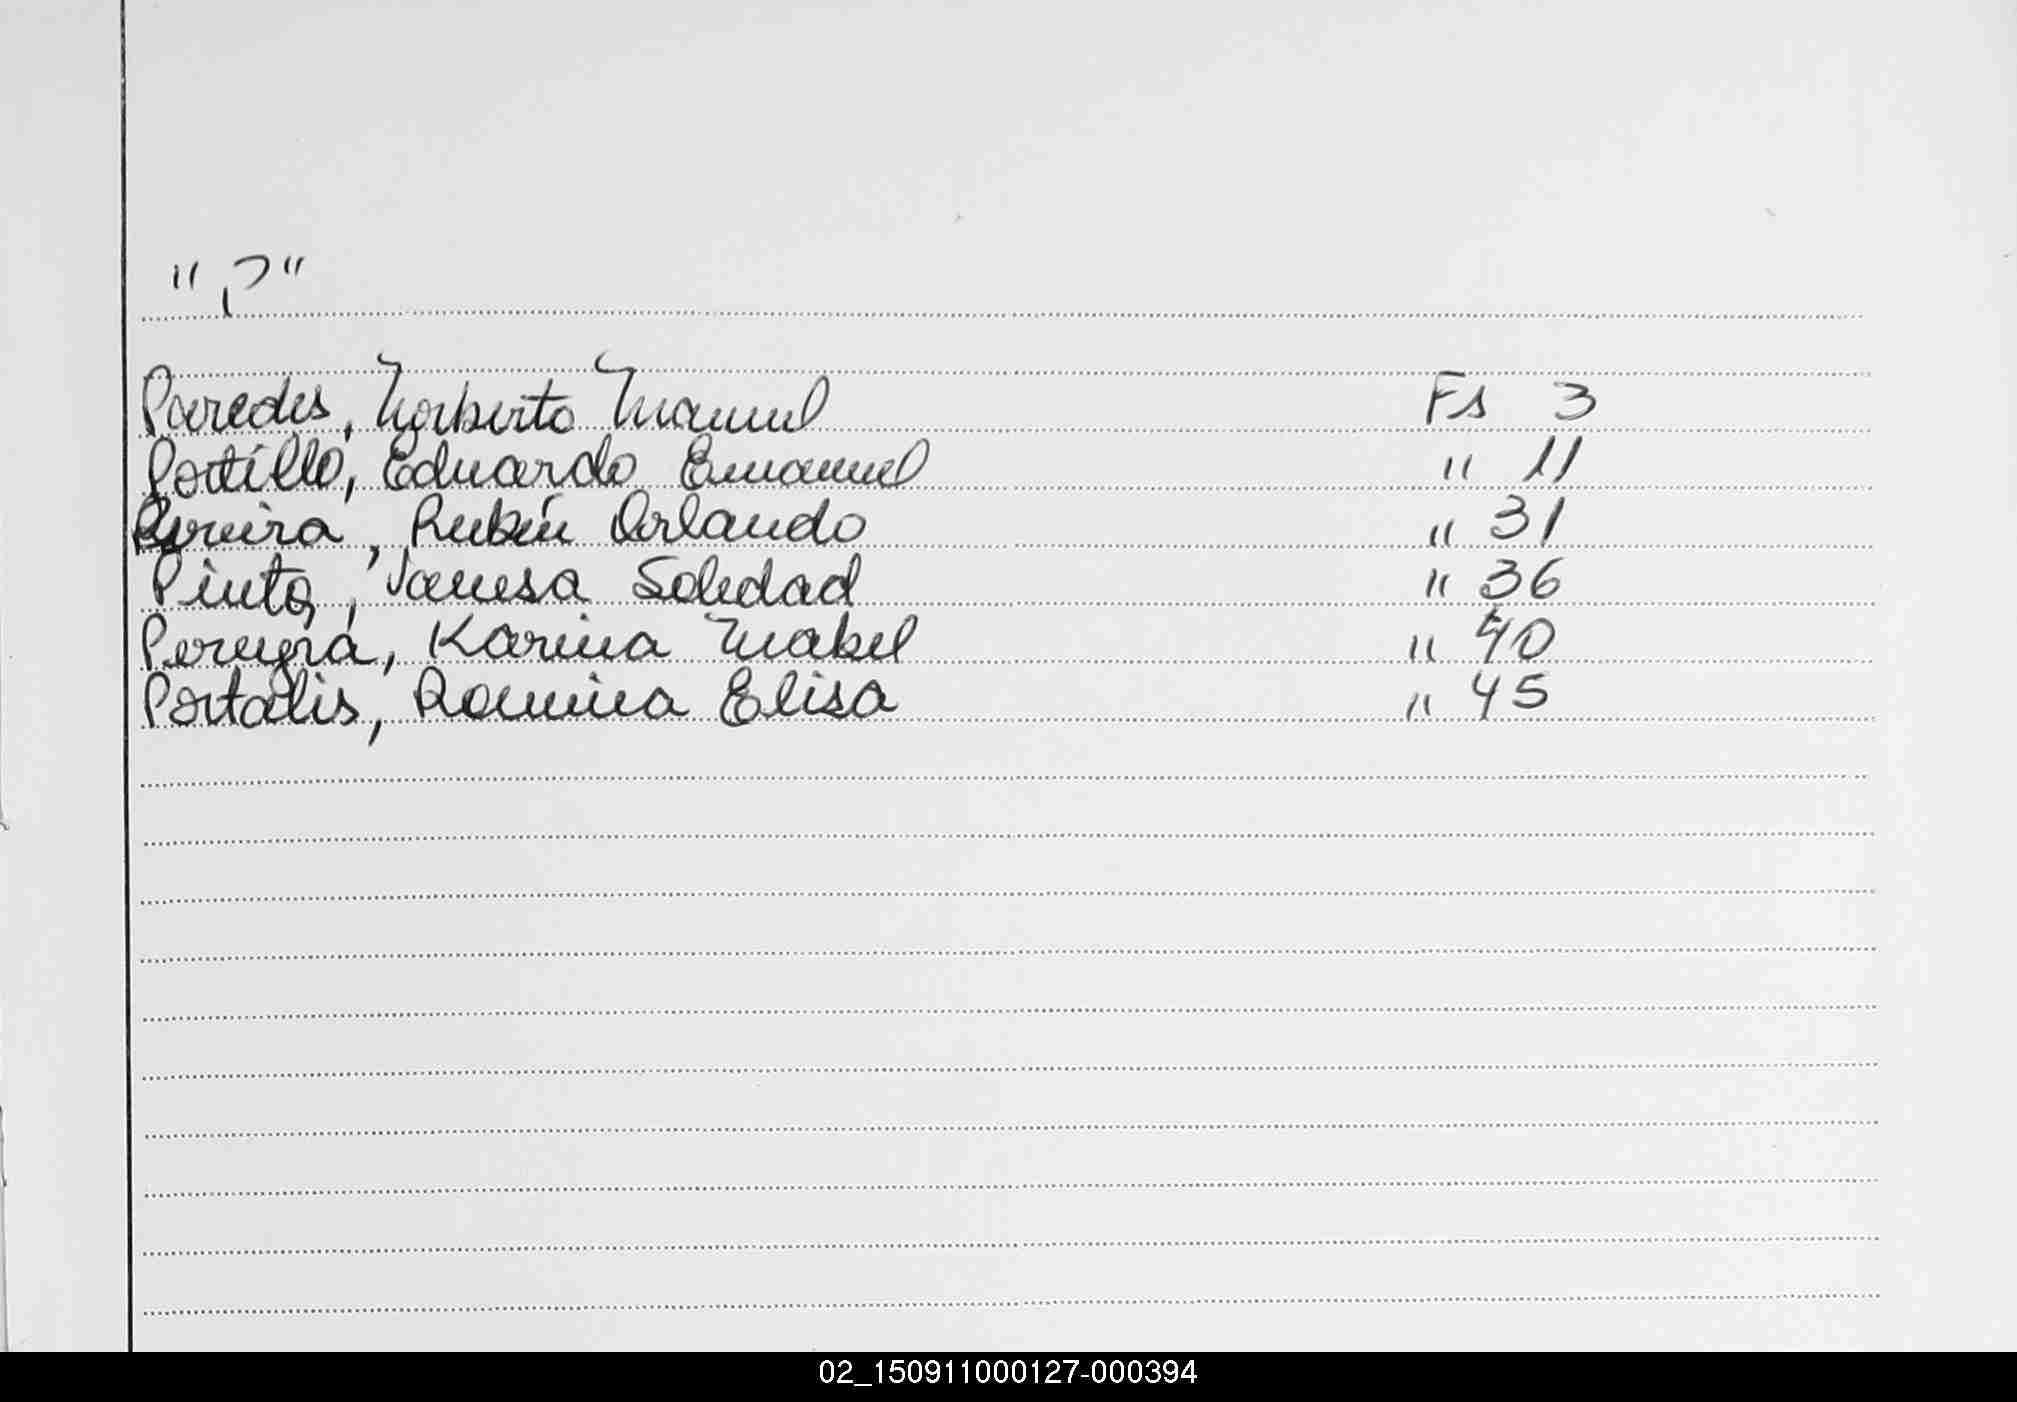 "P"
Paredes, Norberto Manuel Fs 3
Portillo, Eduardo Emanuel " 11
Pereira, Rubén Orlando " 31
Pinto, Vanesa Soledad " 36
Pereyra, Karina Mabel " 40
Portalis, Romina Elisa " 45
02_150911000127-000394